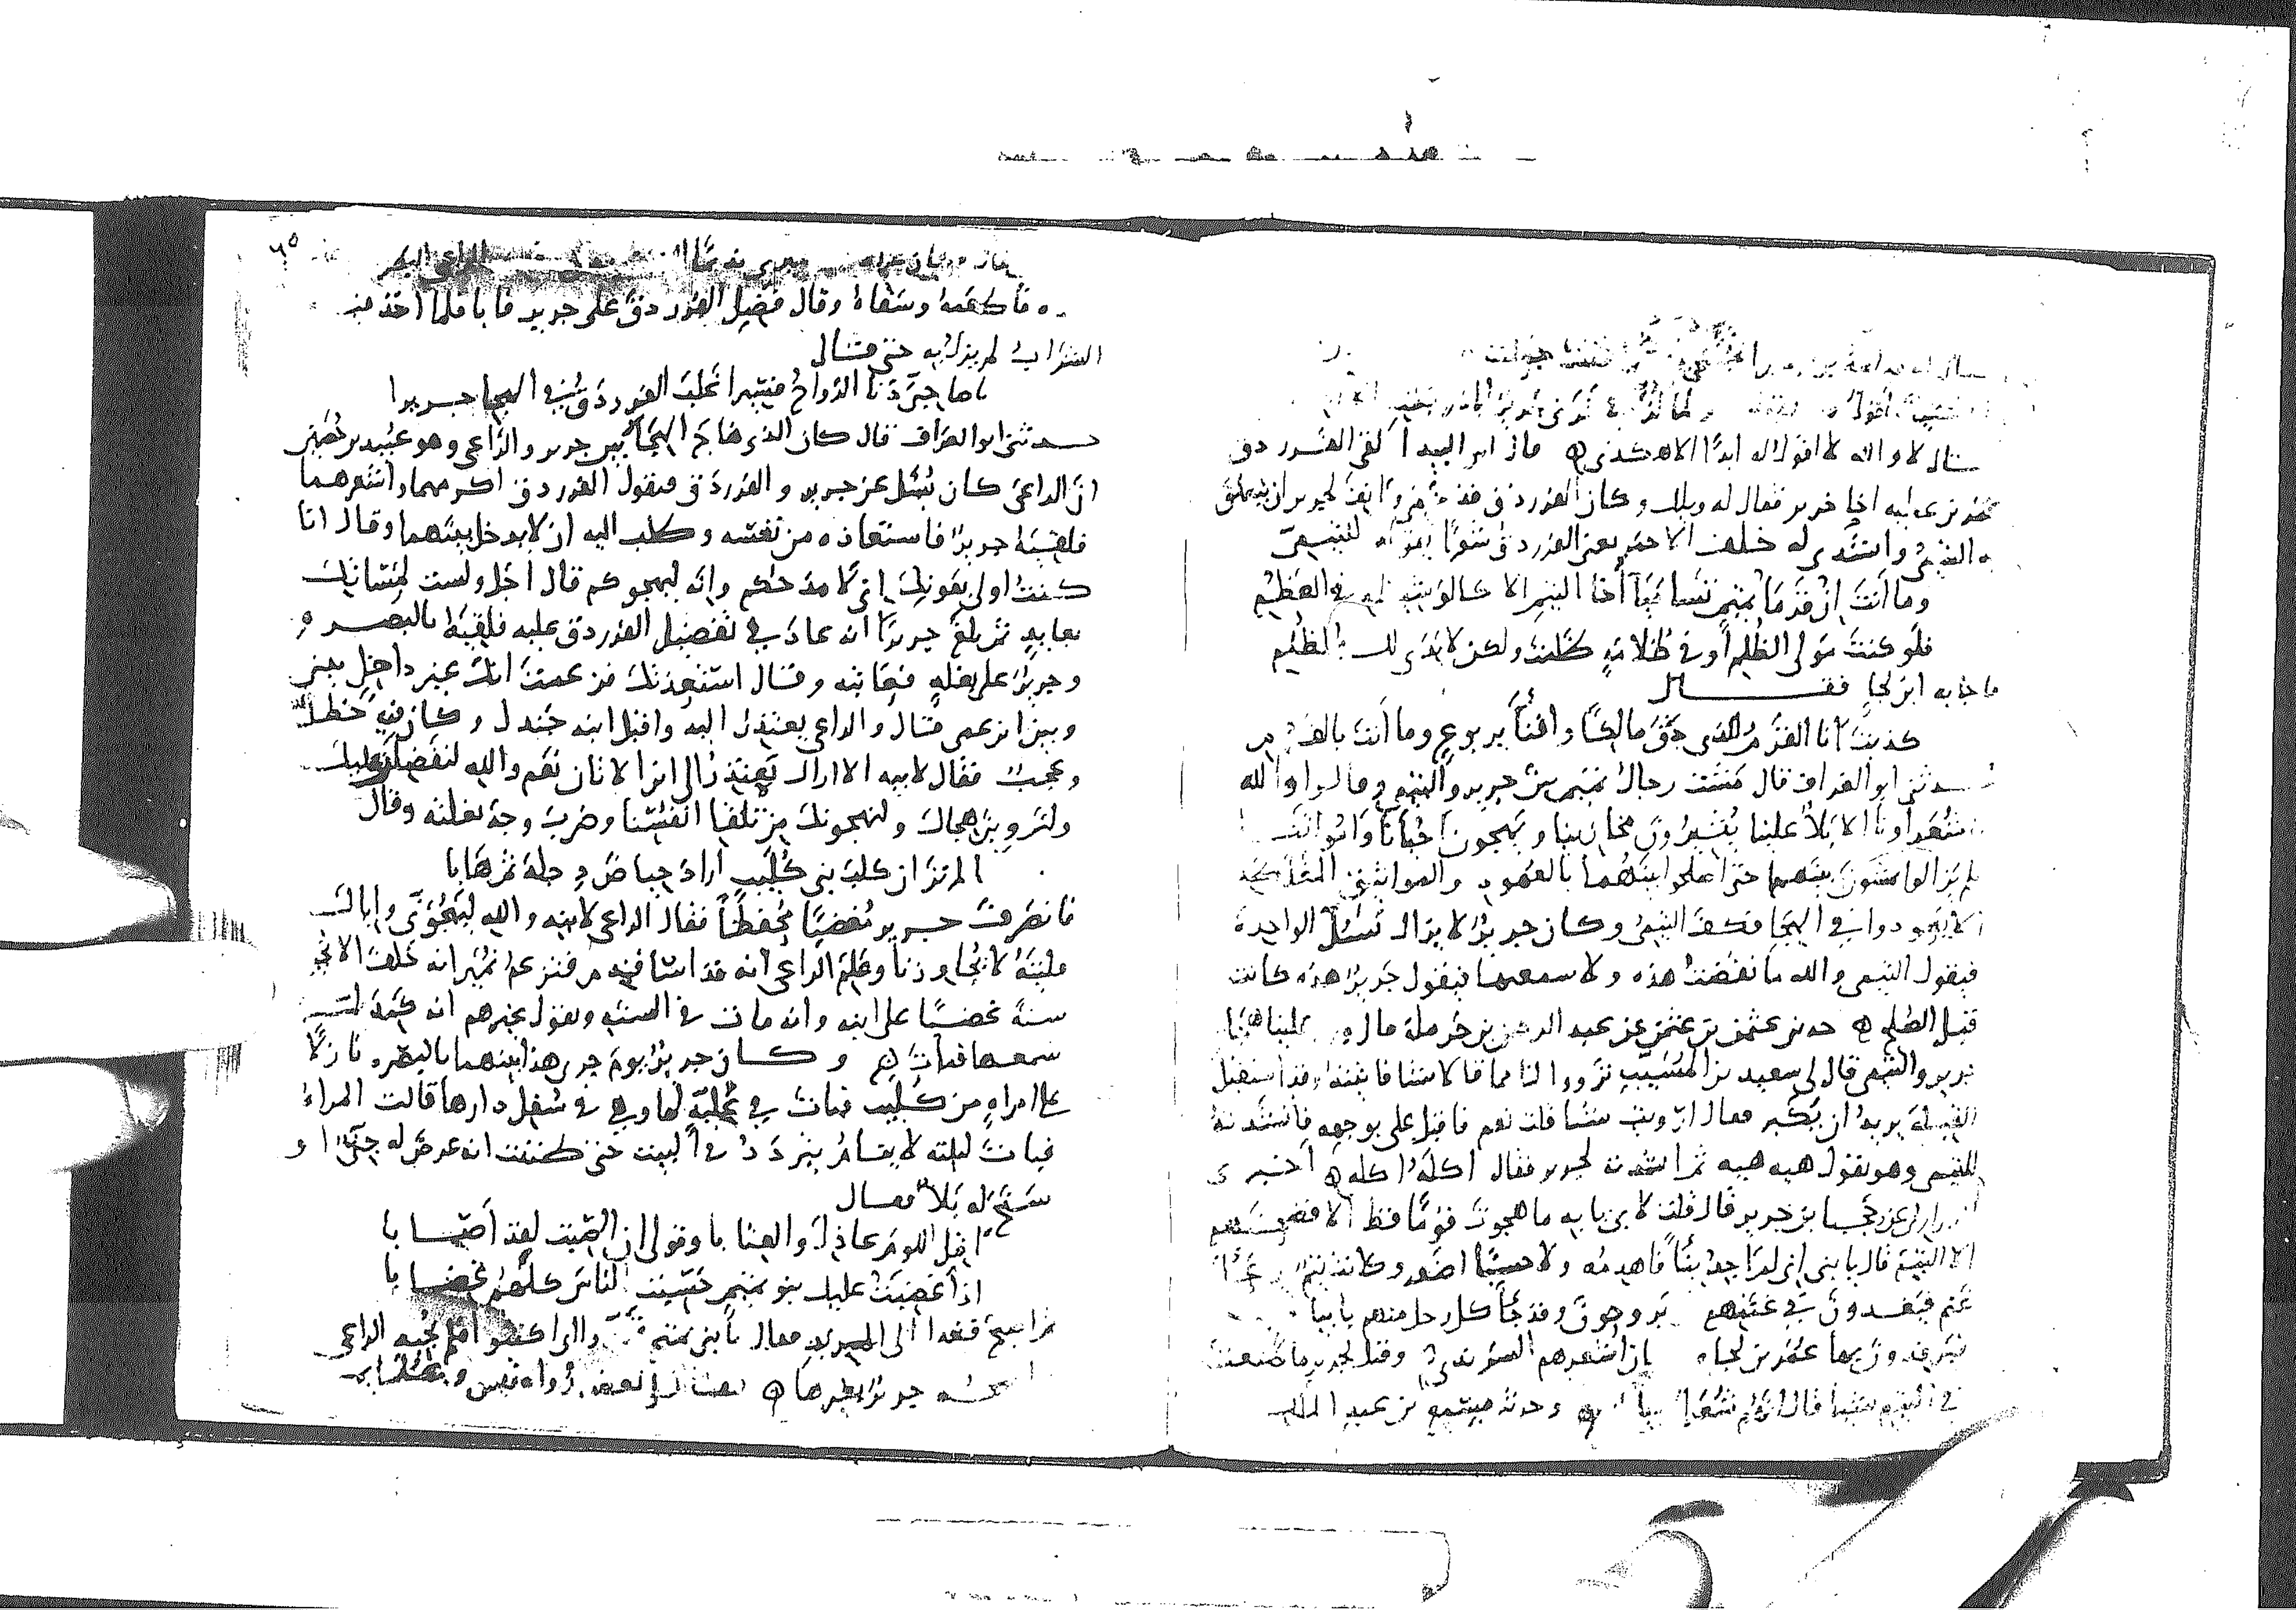 قال لا والله لا اقول له ابدًا الا هكذى ۞ قال ابو البيدا لقى الفرزدق
عمر بن عطيه اخا جرير فقال له ويلك وكان الفرزدق قد وانف لجرير ان يتعلق
به التيمى وانشدى له خلف الاحمر يعنى الفرزدق شعرًا يقوله للتيمى
وما انت ان قرما تميم تساميا أخا التيم الا كالوشيظه فى العظم
فلو كنت مولى الظلم او فى ظلاله ظلمت ولكن لا يدى لك بالظلم
فاجابه ابن لجا فقال
كذبت انا القرم الذى دق مالكًا وافناء يربوع وما انت بالقرم
حدثنى ابو الغراف قال مشت رجال تميم بين جرير والتيم وقالوا والله
ما شعراونا الا بلاء علينا ينشرون مخازينا ويهجون احيانا وامواتنا
فلم يزالوا يمشون بينهما حتى اصلحوا بينهما بالعهود والمواثيق المغلظه
الا يعودوا فى الهجا فكف التيمى وكان جرير لا يزال يسل الواحدة
فيقول التيمى والله ما نقضت هذه ولا سمعها فيقول جرير هذه كانت
قبل الصلح ۞ حدثنى عثمن بن عثمن عن عبد الرحمن بن حرملة قال علينا هجا
جرير والتيمى قال لى سعيد بن المسيب تروى لنا مما قالا شيا فاتيته وقد استقبل
القبلة يريد ان يكبر فقال ارويت شيا قلت نعم فاقبل على بوجهه فانشدته
للتيمى وهو يقول هيه هيه ثم انشدته لجرير فقال اكله اكله ۞ اخبرنى
الرازى عن حجنا بن جرير قال قلت لابى يا ابه ما هجوت قومًا قط الا فضحتهم
الا التيم قال يا بنى انى لم اجد بنًا فاهدمه ولا حسبًا اضعه وكانت تيم رعاء
غنم فيغدون فى غنمهم يروحون وقد جاء كل رجل منهم بابيات
فيرفدون بها عمر بن لجاء بان اشعرهم السرندى وقيل لجرير ما صنعت
فى التيم شيا قال انهم شعرا ۞ وحدثنى مسمع بن عبد الملك
الراعى
فاطعمه وسقاه وقال فضل الفرزدق على جرير فابا فلما اخذ فيه
الشراب لم يزل به حتى قال
يا صاحبى دنا الرواح فسيرا غلب الفرزدق فى الهجا جريرا
حدثنى ابو الغراف قال كان الذى هاج الهجا بين جرير والراعى وهو عبيد بن حصين
ان الراعى كان يسل عن جرير والفرزدق فيقول الفرزدق اكرمهما واشعرهما
فلقيه جرير فاستعاذه من نفسه وطلب اليه ان لا يدخل بينهما وقال انا
كنت اولى بعونك انى لامدحكم وانه ليهجوكم قال اجل ولست لمساتك
بعايد ثم بلغ جريرًا انه عاد فى تفضيل الفرزدق عليه فلقيه بالبصره
وجرير على بغله فعاتبه وقال استعذتك فزعمت انك غير داخل بينى
وبين ابن عمى قال والراعى يعتذر اليه واقبل ابنه جندل وكان فيه خطل
وعجب فقال لابيه الا اراك تعتذر الى ابن الاتان نعم والله لنفضلن عليك
ولنروين هجاك ولنهجونك من تلقا انفسنا وضرب وجه بغلته وقال
الم تر ان كلب بنى كليب اراد حياض دجلة ثم هابا
فانصرف جرير مغضبًا محفظًا فقال الراعى لابنه والله ليهجونى واياك
فليته لا يجاوزنا وعلم الراعى انه قد اسا فندم فتزعم نمير انه حلف الا يجيبه
سنة غضبًا على ابنه وانه مات فى السنه ويقول غيرهم انه كمد لما
سمعها فمات ۞ وكان جرير يوم جرى هذا بينهما بالبصره نازلًا
على امراه من كليب فبات فى علية لها وهى فى سفل دارها قالت المراه
فبات ليلته لا ينام يتردد فى البيت حتى ظننت انه عرض له جنى او
سنح له بلاء فقال
اقلى اللوم عاذل والعتابا وقولى ان اصبت لقد اصابا
اذا غضبت عليك بنو تميم حسبت الناس كلهم غضابا
ثم اصبح فغدا الى المربد فقال يا بنى تميم قيدوا اى اكتبوا فلم يجبه الراعى